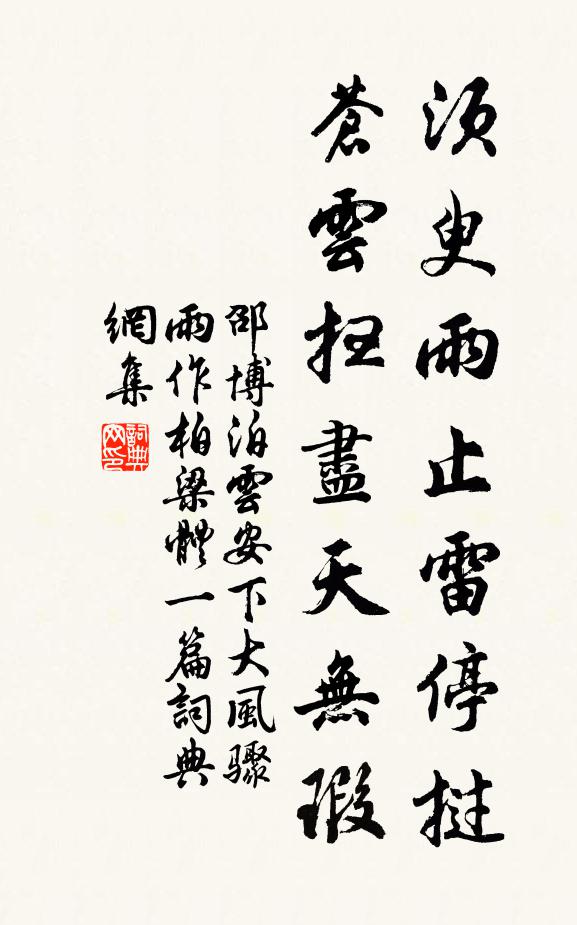 須臾雨止雷停撾
蒼雲掃盡天無瑕
邵博泊雲安下大風驟
雨作柏梁體一篇詞典
網集
詞典網印